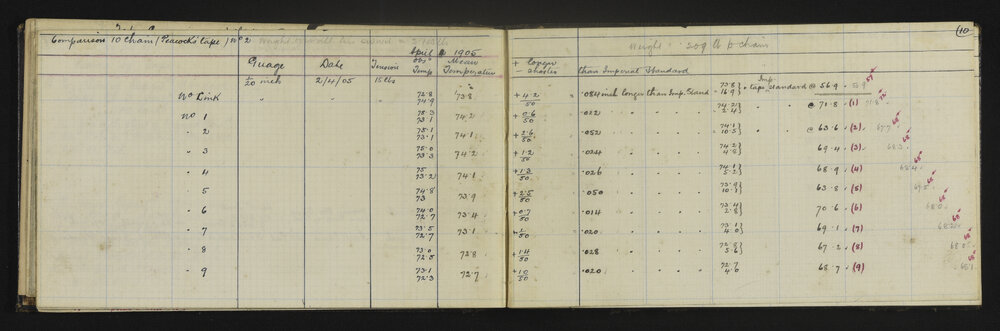 (10)
Comparison 10 Chain (Peacock's Tape) No 2
Weight 209 lb p chain
April 1905
Guage Date Tension Obs Temp Mean Temperature + Longer - shorter than Imperial Standard
1/20 inch 2/4/05 15 lbs
No Link " " 72.8 74.9 73.8 +4.2/50 = .084 inch longer than Imp. Stand 73.8 16.9 } Imp. tape Standard @ 56.9
No 1 75.3 73.1 74.2 +0.6/50 = .022 " " " " 74.2 2.4 } " " @ 71.8 (1) 71.8
" 2 75.1 73.1 74.1 +2.6/50 = .052 " " " " 74.1 10.5 } " " @ 63.6 (2)
" 3 75.0 73.3 74.2 +1.2/50 = .024 " " " " 74.2 4.8 } 69.4 (3)
" 4 75 73.2 74.1 +1.3/50 = .026 " " " " 74.1 5.2 } 68.9 (4) 68.4
" 5 74.8 73 73.9 +2.5/50 = .050 " " " " 73.9 10.1 } 63.8 (5)
" 6 74.0 72.7 73.4 +0.7/50 = .014 " " " " 73.4 2.8 } 70.6 (6) 68.0
" 7 73.5 72.7 73.1 +1/50 = .020 " " " " 73.1 4.0 } 69.1 (7)
" 8 73.0 72.5 72.8 +1.4/50 = .028 " " " " 72.8 5.6 } 67.2 (8) 68.0
" 9 73.1 72.3 72.7 +1.0/50 = .020 " " " " 72.7 4.0 } 68.7 (9)